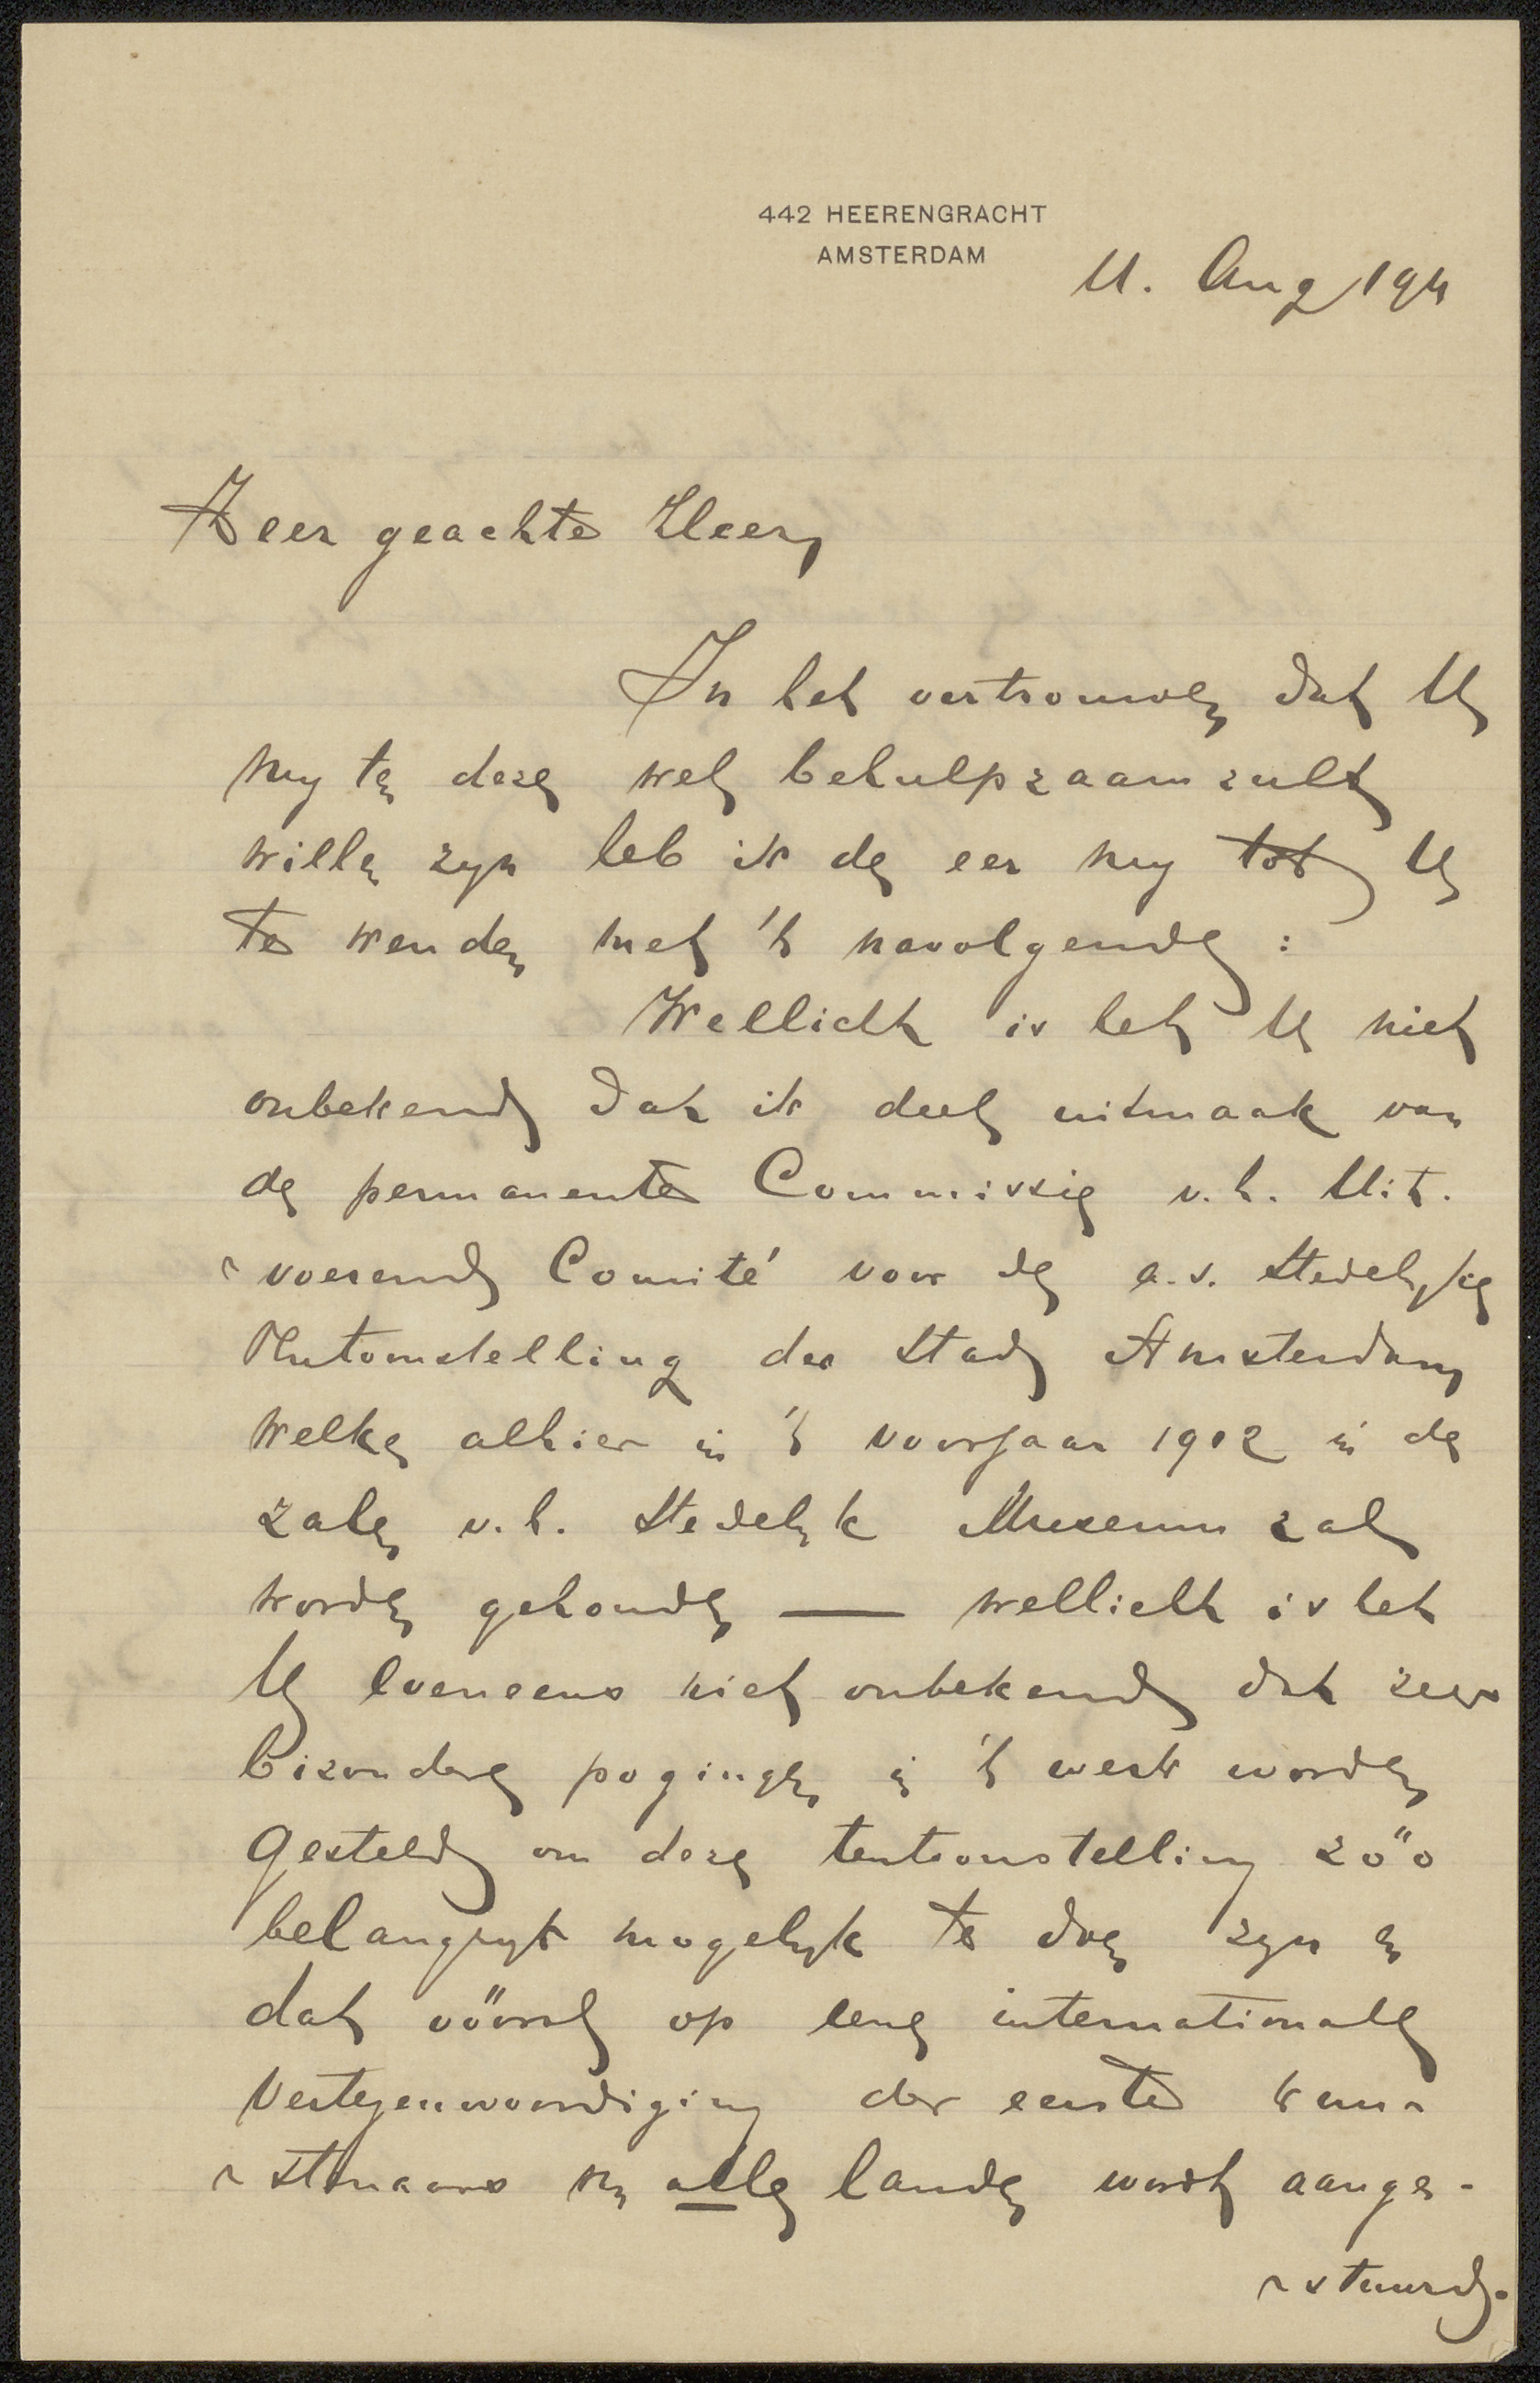 442 HEERENGRACHT
AMSTERDAM
11. Aug 1911
Zeer geachte Heer,
In het vertrouwen dat U
my te deze wel behulpzaam zult
willen zyn heb ik de eer my tot U
te wenden met 't navolgende :
Wellicht is het U niet
onbekend dat ik deel uitmaak van
de permanente Commissie v.h. Uit-
voerend Comité voor de a.s. Stedelyke
Tentoonstelling der Stad Amsterdam
welke alhier in 't voorjaar 1912 in de
zalen v.h. Stedelyk Museum zal
worden gehouden — wellicht is het
U eveneens niet onbekend dat zeer
bizondere pogingen in 't werk worden
gesteld om deze tentoonstelling zóó
belangryk mogelyk te doen zyn en
dat vóóral op eene internationale
vertegenwoordiging der eerste kun-
stenaars van alle landen wordt aange-
stuurd.